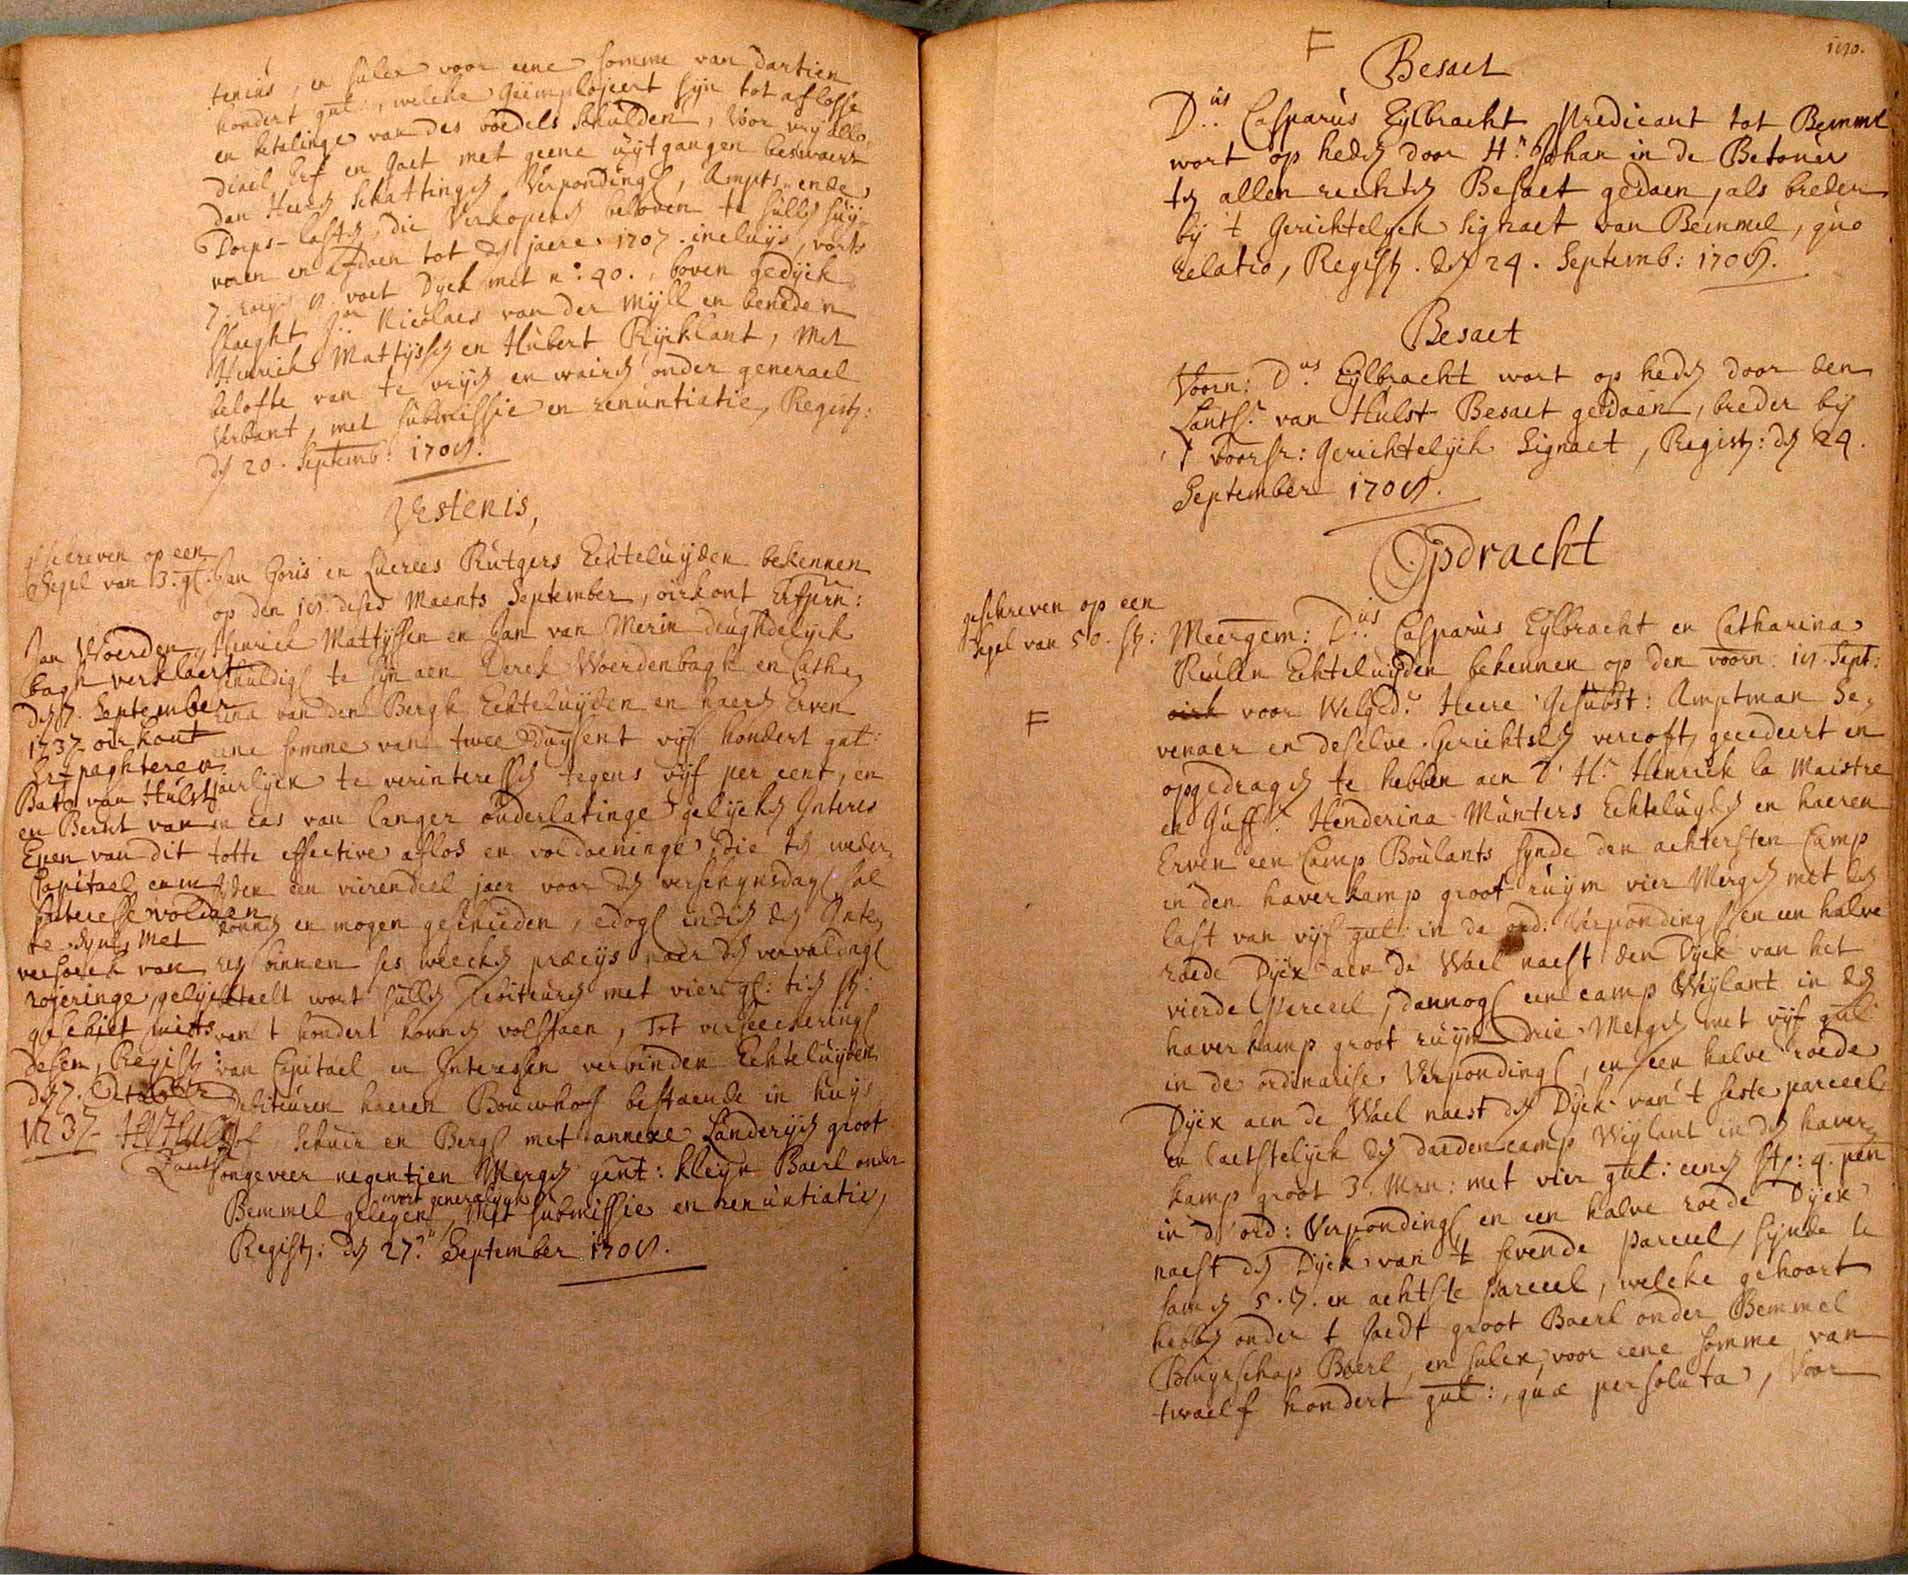 tenius, en sulcx voor eene somme van dartien
hondert gul:, welcke geemployeert sijn tot aflosse
en betalinge van des boedels schulden, voor vrij allo,
diael erf en gaet met geene uijtgangen beswaert
dan Heeren Schattingen Verpondingh, Ampts ende
Dorps-lasten, die Verkoperen beloven te sullen suij,
veren en afdoen tot den jaere 1707. incluijs, vorts
7. roeden voet Dijck met no: 40., boven gedijck
slaeght Jr Nicolaes van der Mijll en beneden
Henrick Mattijssen en Hubert Rijcklant, Met
belofte van te vrijen en waeren onder generael
verbant, met submissie en renuntiatie, Regist:
den 20. Septemb: 1708.
Vestenis,
geschreven op een
Segel van 3. gl.
Jan Goris en Luerees Rutgers Echteluijden bekennen
op den 18. deses Maents September, oirkont Erfpn:
Henrick Mattijssen en Jan van Merm deughdelijck
schuldigh te sijn aen Derck Woerdenbagh en Cathe,
rina van den Bergh Echteluijden en haere Erven
eene somme van twee duijsent vijf hondert gul:
jaerlijcx te verinteressen tegens vijf per cent, en
in cas van langer onderlatinge gelijcke Interes
totte effective aflos en voldoeninge die ten weder,
sijden een vierendeel jaer voor den verschijnsdagh sal
konnen en mogen geschieden, edogh indien den Inte,
res binnen ses weecken præcijs naer den vervaldagh
betaelt wort sullen debiteuren met vier gl: tien st:
van t hondert konnen volstaen, Tot verseeckeringh
van Capitael en Interessen verbinden Echteluijden
debiteuren haeren Bouwhof bestaende in huijs
hof, schuir en Bergh met annexe Landerijen groot
ongeveer negentien Mergen gent: kleijn Baerl onder
Bemmel gelegen, vort generalijck, Met submissie en renuntiatie,
Regist: den 27.en September 1708.
Jan Woerden,
bagh verklaert
den 7. September
1737 oirkont
Erfpaghteren
Bato van Hulst
en Bernt van
Even van dit
Capitael en
Interesse voldaen
te sijn, Met
versoeck van
rojeringe, gelijck
geschiet mits
desen, Regist:
den 7. October
1737
Lants
1010.
F
Besaet
D:us Casparus Eylbracht Predicant tot Bemmel
wort op heden door Hr Johan in de Betouw
ten allen rechten Besaet gedaen, als breder
bij 't Gerichtelijck Signaet van Bemmel, quo
relatio, Regist. den 24. Septemb: 1708.
Besaet
Voorn: D:us Eylbracht wort op heden door den
Lants. van Hulst Besaet gedaen, breder bij
't voorsr: Gerichtelijck Signaet, Regist: den 24.
September 1708.
Opdracht
geschreven op een
segel van 50. st:
F
Meergem: D:us Casparus Eylbracht en Catharina
Reulln Echteluijden bekennen op den voorn: 18. Sept:
oirk voor Welged. Heere Gesubst: Amptman Se,
venaer en deselve Gerichtsln vercoft gecedeert en
opgedragen te hebben aen d' Hr. Henrick la Maistre
en Juffr. Henderina Munters Echteluijden en haeren
Erven een Camp Boulants sijnde den achtersten Camp
in den haverkamp groot ruijm vier Mergen met den
last van vijf gul: in de ord: Verpondingh en een halve
roede Dijck aen de Wael naest den Dijck van het
vierde Parceel, dannogh een camp Weijlant in den
haverkamp groot ruijm drie Mergen met vijf gul:
in de ordinarise Verpondingh, en een halve roede
Dijck aen de Wael naest den Dijck van 't seste parceel
en laetstelijck den darden camp Weijlant in den haver,
kamp groot 3. Mrn: met vier gul: eenen st: 4. pen
in d' ord: Verpondingh en een halve roede Dijck
naest den Dijck van 't sevende parceel, sijnde te
samen 5. 7. en achtste Parceel, welcke gehoort
hebben onder 't Goedt groot Baerl onder Bemmel
Buyrschap Baerl, en sulcx voor eene somme van
twaelf hondert gul:, quæ persoluta, Voor